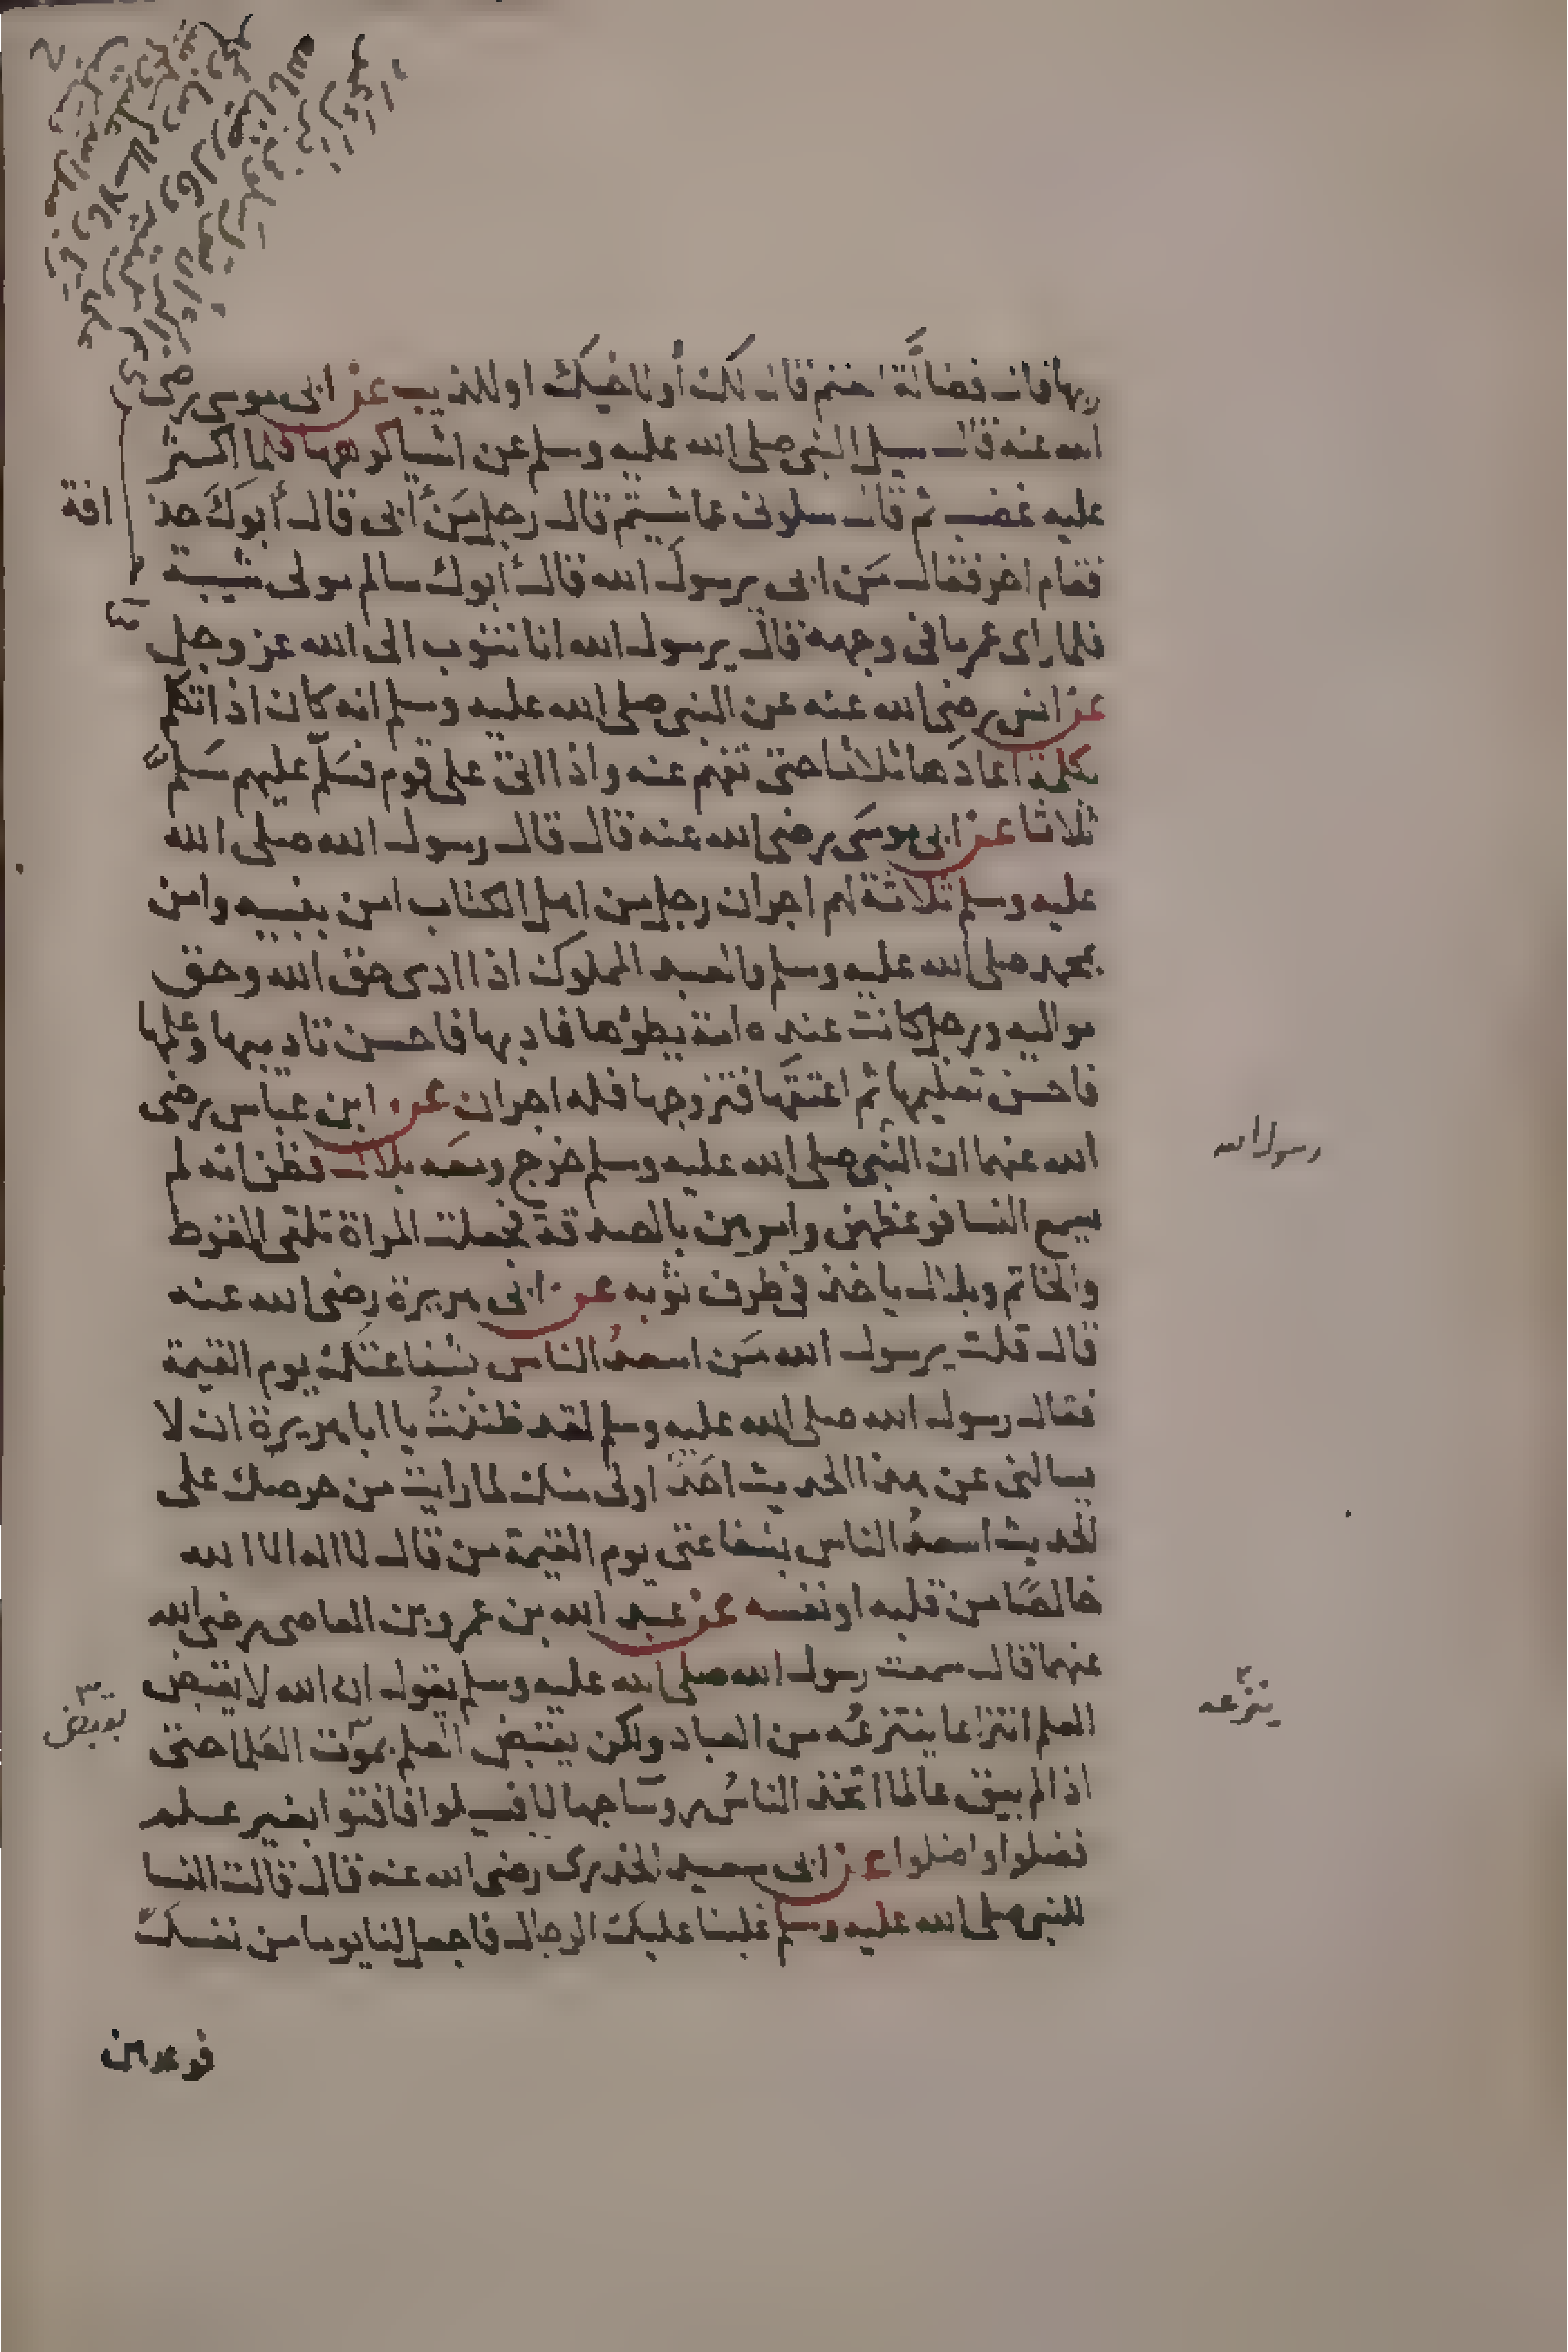 ربها قال فضالَّة الغنم قال لك أو لاخيك او للذيب عن ابى موسى رضى
الله عنه قال سيل النبى صلى الله عليه وسلم عن اشيا كرهها فلما اكثر
عليه غضب ثم قال سلونى عما شيتم قال رجل مَن أبى قال أبوكَ حذ
افة
فقام اخر فقال مَن ابى يرسول الله قال أبوك سالم مولى شيبة
فلما راى عمر ما فى وجهه قال يرسول الله انا نتوب الى الله عز وجل
عن انس رضى الله عنه عن النبى صلى الله عليه وسلم انه كان اذا تكلم
بكلمة اعادَها ثلاثا حتى تفهم عنه واذا اتى على قوم فسَلّم عليهم سَلم
ثلاثا عن ابى موسَى رضى الله عنه قال قال رسول الله صلى الله
عليه وسلم ثلاثة لهم اجران رجل من اهل الكتاب امن بنبيه وامن
بمحمد صلى الله عليه وسلم والعبد المملوك اذا ادى حق الله وحق
مواليه ورجل كانت عنده امة يطؤها فادبها فاحسن تاديبها وعلمها
فاحسن تعليمها ثم اعتقَها فتزوجها فله اجران عن ابن عباس رضى
الله عنهما ان النبى صلى الله عليه وسلم خرج ومعَه بلال فظن انه لم
رسول الله
يسمع النسا فوعظهن وامرهن بالصدقة فجعلت المراة تلقى القرط
والخاتم وبلال ياخذ فى طرف ثوبه عن ابى هريرة رضى الله عنه
قال قلت يرسول الله مَن اسعدُ الناس بشفاعتك يوم القيمة
فقال رسول الله صلى الله عليه وسلم لقد ظننتُ يا ابا هريرة ان لا
يسالنى عن هذا الحديث احَدٌ اولى منك لما رايت من حرصك على
الحديث اسعدُ الناس بشفاعتى يوم القيمة من قال لا اله الا الله
خالصًا من قلبه او نفسه عن عبد الله بن عمرو بن العاصى رضى الله
عنهما قال سمعت رسول الله صلى الله عليه وسلم يقول ان الله لا يقبض
ينتزعه
العلم انتزاعا ينتزعُه من العباد ولكن يقبض العلم بموت العلما حتى
بقبض
اذا لم يبق عالما اتخذ الناسُ روسًا جهالا فسيلوا فافتوا بغير علم
فضلوا واضلوا عن ابى سعيد الخدرى رضى الله عنه قال قالت النسا
للنبى صلى الله عليه وسلم غلبنا عليك الرجال فاجعل لنا يوما من نفسك
فوعدهن